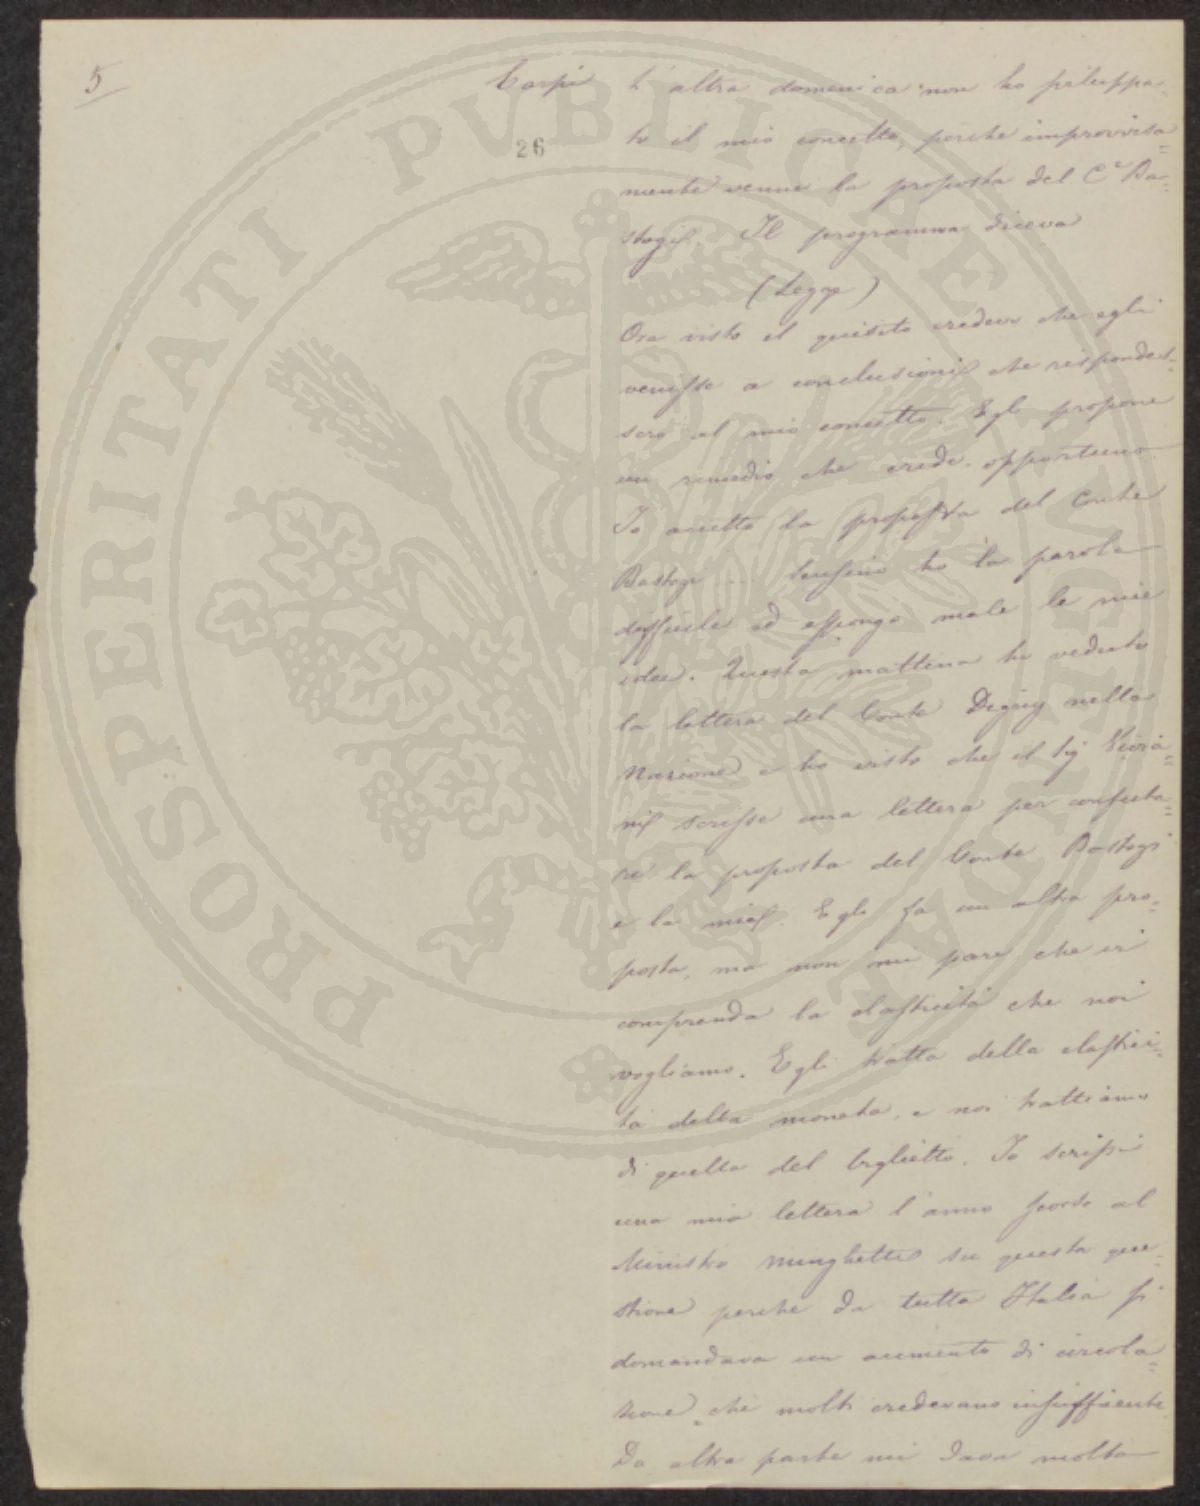 5
Carpi L'altra domenica non ho sviluppa-
26
to il mio concetto, perché improvvisa=
mente venne la proposta del Cᵉ Ba=
stogi. Il programma diceva
(Legge)
Ora visto il quisito credeva che egli
venisse a conclusioni che rispondes-
sero al mio concetto. Egli propone
un rimedio che crede opportuno
Io accetto la proposta del Conte
Bastogi ... ho la parola
difficile ed espongo male le mie
idee. Questa mattina ho veduto
la lettera del Conte Digny nella
Nazione e ho visto che il Sig
scrisse una lettera per confuta=
re la proposta del Conte Bastogi
e la mia. Egli fa un altra pro=
posta, ma non mi pare che ci
comprenda la elasticità che noi
vogliamo. Egli tratta della elastici=
tà della moneta, e noi trattiamo
di quella del biglietto. Io scrissi
una mia lettera l'anno scorso al
Ministro Minghetti su questa que=
stione perché da tutta Italia si
domandava un aumento di circola=
zione che molti credevano insufficiente
Da altra parte mi dava molta
PROSPERITATI PVBLICAE AVGENDAE